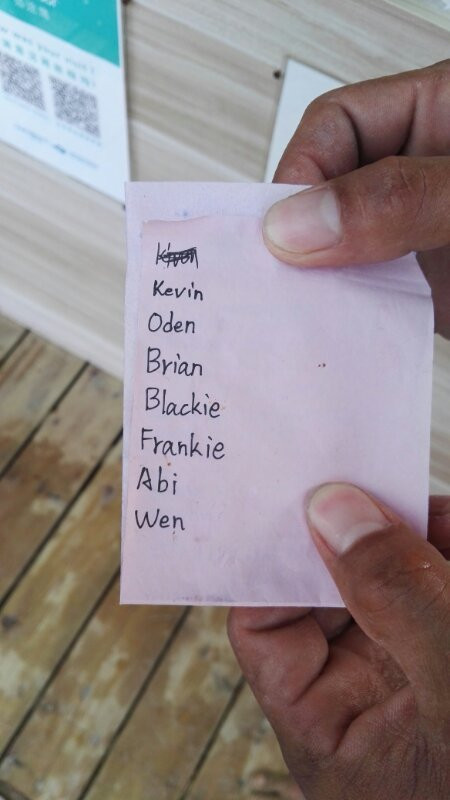 Kevin
Oden
Brian
Blackie
Frankie
Abi
Wen